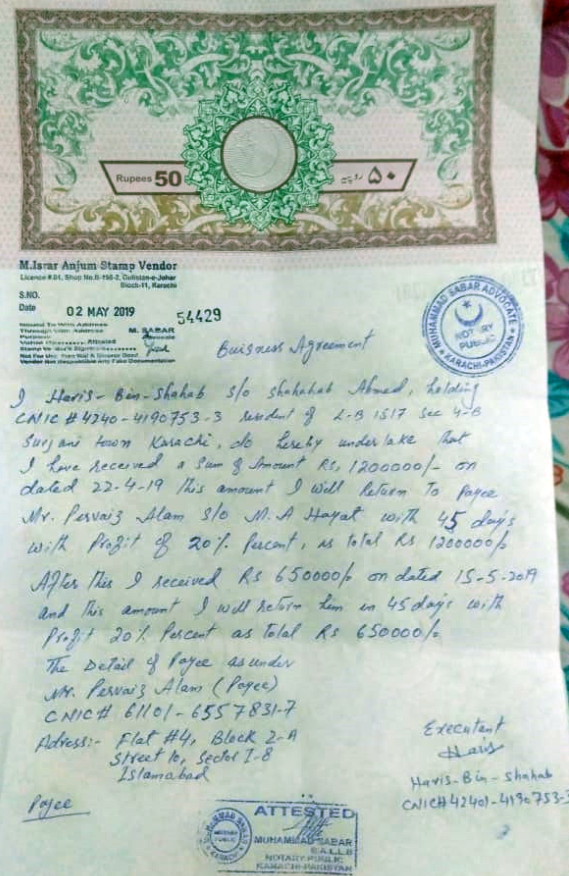 Rupees 50
۵۰ روپیہ
M.Israr Anjum Stamp Vendor
Licence # 01, Shop No.B-156-2, Gulistan-e-Johar
Block-11, Karachi
S.NO.
Date 02 MAY 2019 54429
Issued To With Address
Through With Address M. SABAR
Purpose Advocate
Value Attached
Stamp Vendor's Signature
MUHAMMAD SABAR ADVOCATE
NOTARY
PUBLIC
KARACHI-PAKISTAN
Buisness Agreement
I Haris-Bin-Shahab S/o Shahahab Ahmed, holding
CNIC # 4240-4190753-3 resident of L-B 1517 Sec 4-B
Surjani town Karachi, do hereby undertake that
I have received a Sum of Amount Rs, 1200000/- on
dated 22-4-19 this amount I will Return To Payee
Mr. Pervaiz Alam S/o M.A Hayat with 45 days
with Profit of 20% Percent, as total Rs 1200000/-
After this I received Rs 650000/- on dated 15-5-2019
and this amount I will return him in 45 days with
Profit 20% Percent as Total Rs 650000/-
The Detail of Payee as under
Mr. Pervaiz Alam (Payee)
CNIC# 61101-6557831-7
Adress:- Flat #4, Block 2-A
Street 10, Sector I-8
Islamabad
Payee
Executant
Haris
Haris-Bin-Shahab
CNIC# 42401-4190753-3
ATTESTED
MUHAMMAD SABAR
B.A.L.L.B
NOTARY PUBLIC
KARACHI-PAKISTAN